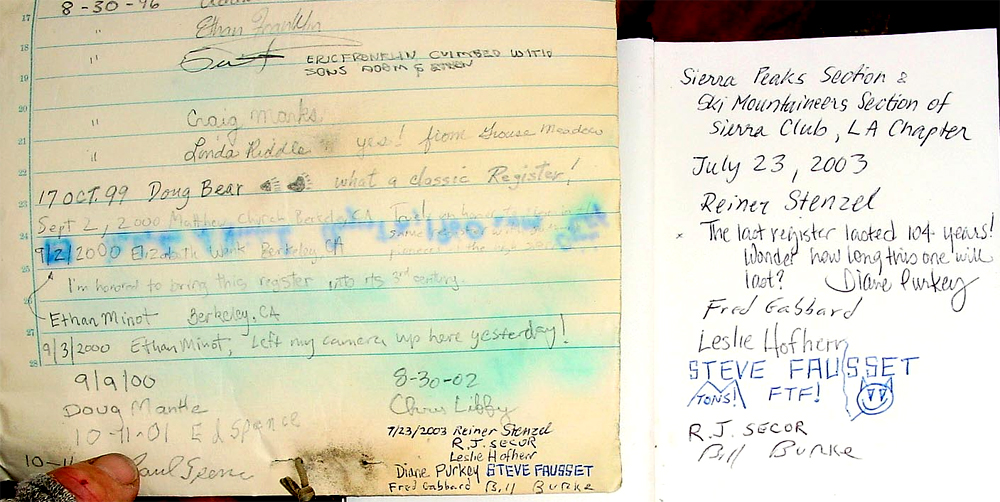 8-30-96
17 " Ethan Franklin
18 " ERIC FRONKLIN CLIMBED WITH
SONS ADAM &
19
20 " Craig Marks
21 " Linda Riddle yes! from Grouse Meadow
22
17 OCT. 99 Doug Bear what a classic Register!
23
Sept 2, 2000 Matthew Church Berkeley CA
24
9/2/2000 Elizabeth Wonk Berkeley, CA
25
I'm honored to bring this register into its 3rd century.
Ethan Minot Berkeley, CA
27
9/3/2000 Ethan Minot, Left my camera up here yesterday!
28
9/9/00 8-30-02
Doug Mantle Chris Libby
10-11-01 Ed Spence
7/23/2003 Reiner Stenzel
R.J. SECOR
Leslie Hofherr
10-11 Paul
Diane Purkey STEVE FAUSSET
Fred Gabbard Bill Burke
Sierra Peaks Section &
Ski Mountaineers Section of
Sierra Club, LA Chapter
July 23, 2003
Reiner Stenzel
The last register lasted 104 years!
Wonder how long this one will
last? Diane Purkey
Fred Gabbard
Leslie Hofherr
STEVE FAUSSET
TONS! FTF!
R.J. SECOR
Bill Burke